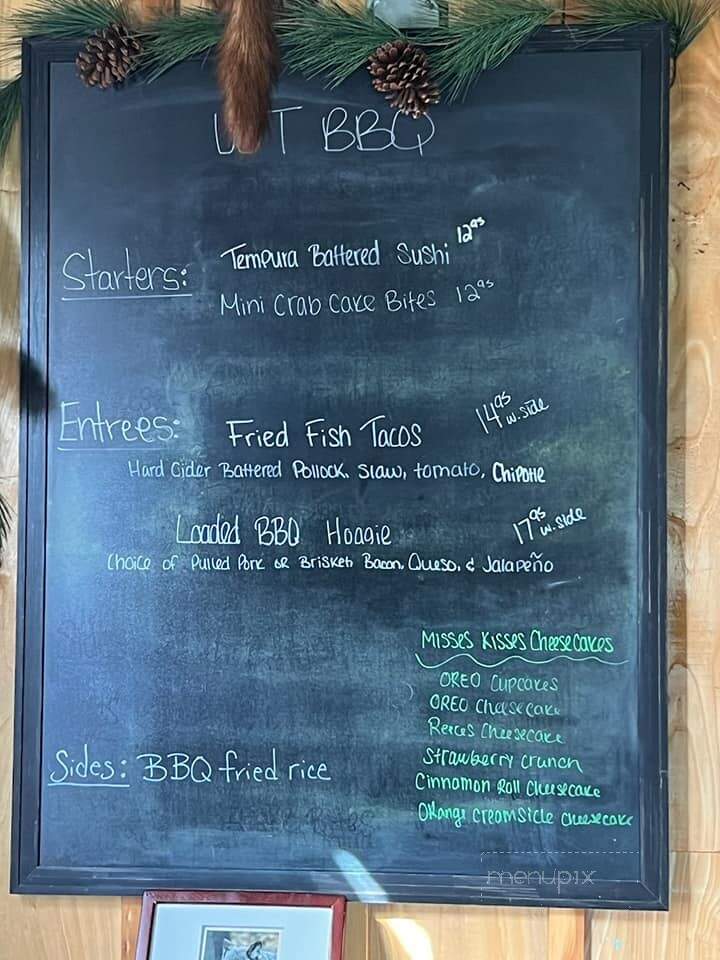 T BBQ
Starters: Tempura Battered Sushi 12.95
Mini Crab Cake Bites 12.95
Entrees: Fried Fish Tacos 14.95 w. side
Hard Cider Battered Pollock, Slaw, tomato, Chipotle
Loaded BBQ Hoagie 17.95 w. side
Choice of Pulled Pork or Brisket, Bacon, Queso, & Jalapeño
Misses Kisses Cheesecakes
OREO Cupcakes
OREO Cheesecake
Reeces Cheesecake
Strawberry Crunch
Cinnamon Roll Cheesecake
Orange Creamsicle Cheesecake
Sides: BBQ fried rice
menupix